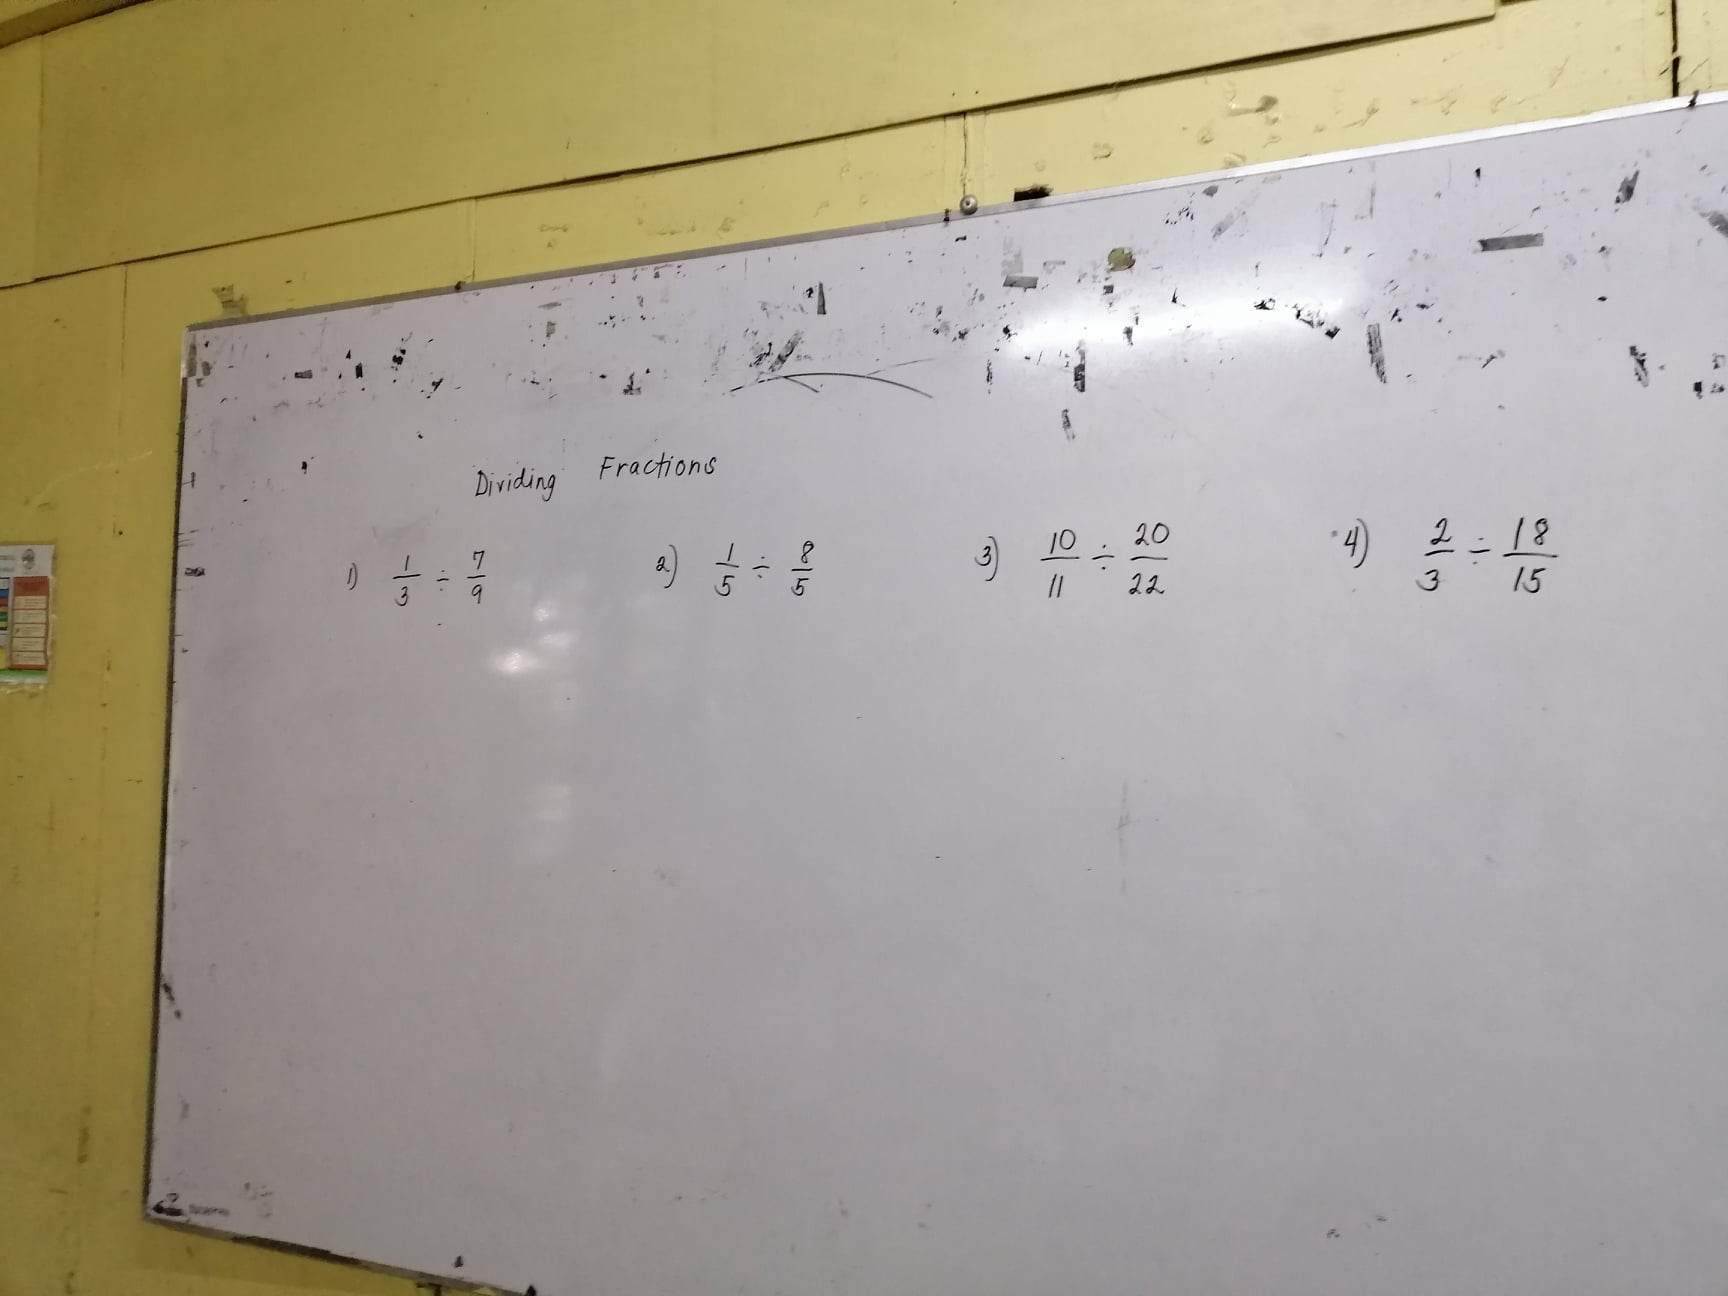 Dividing Fractions
1) 1/3 ÷ 7/9 2) 1/5 ÷ 8/5 3) 10/11 ÷ 20/22 4) 2/3 ÷ 18/15